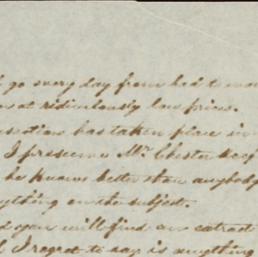 go every day from bad to worse
at ridiculously low prices.
has taken place in
I presume Mr. Chester
he knows better than anybody
anything on the subject.
you will find an extract
I regret to say is anything